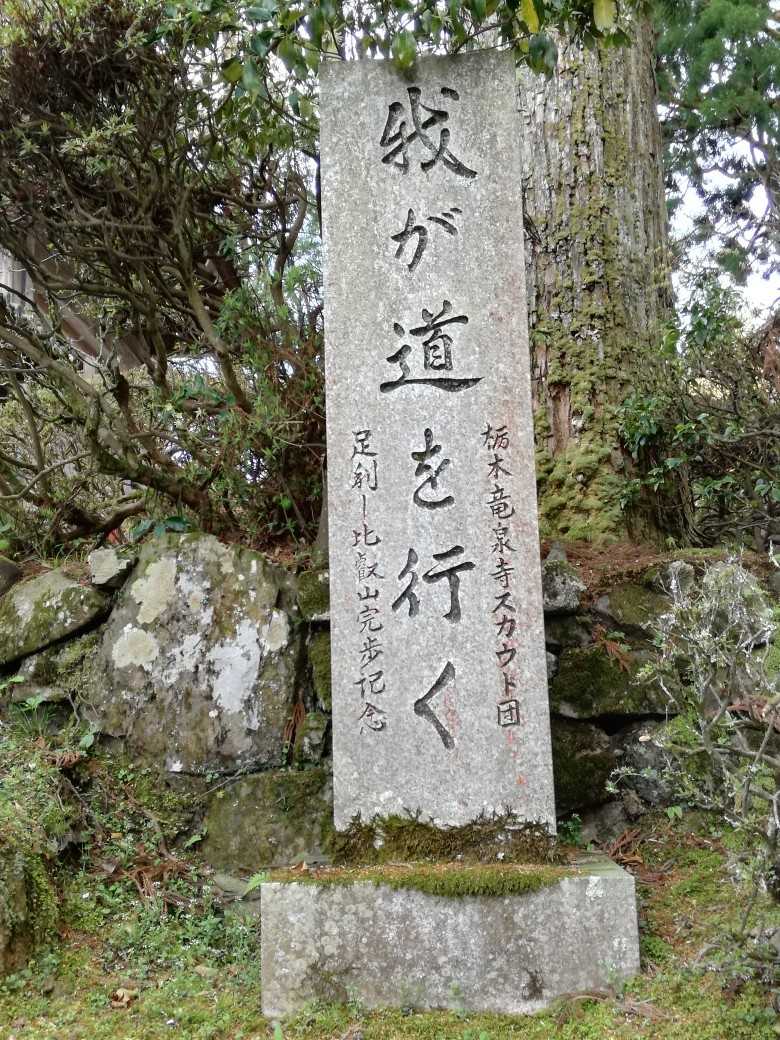 栃木竜泉寺スカウト団
我が道を行く
足利ー比叡山完歩記念